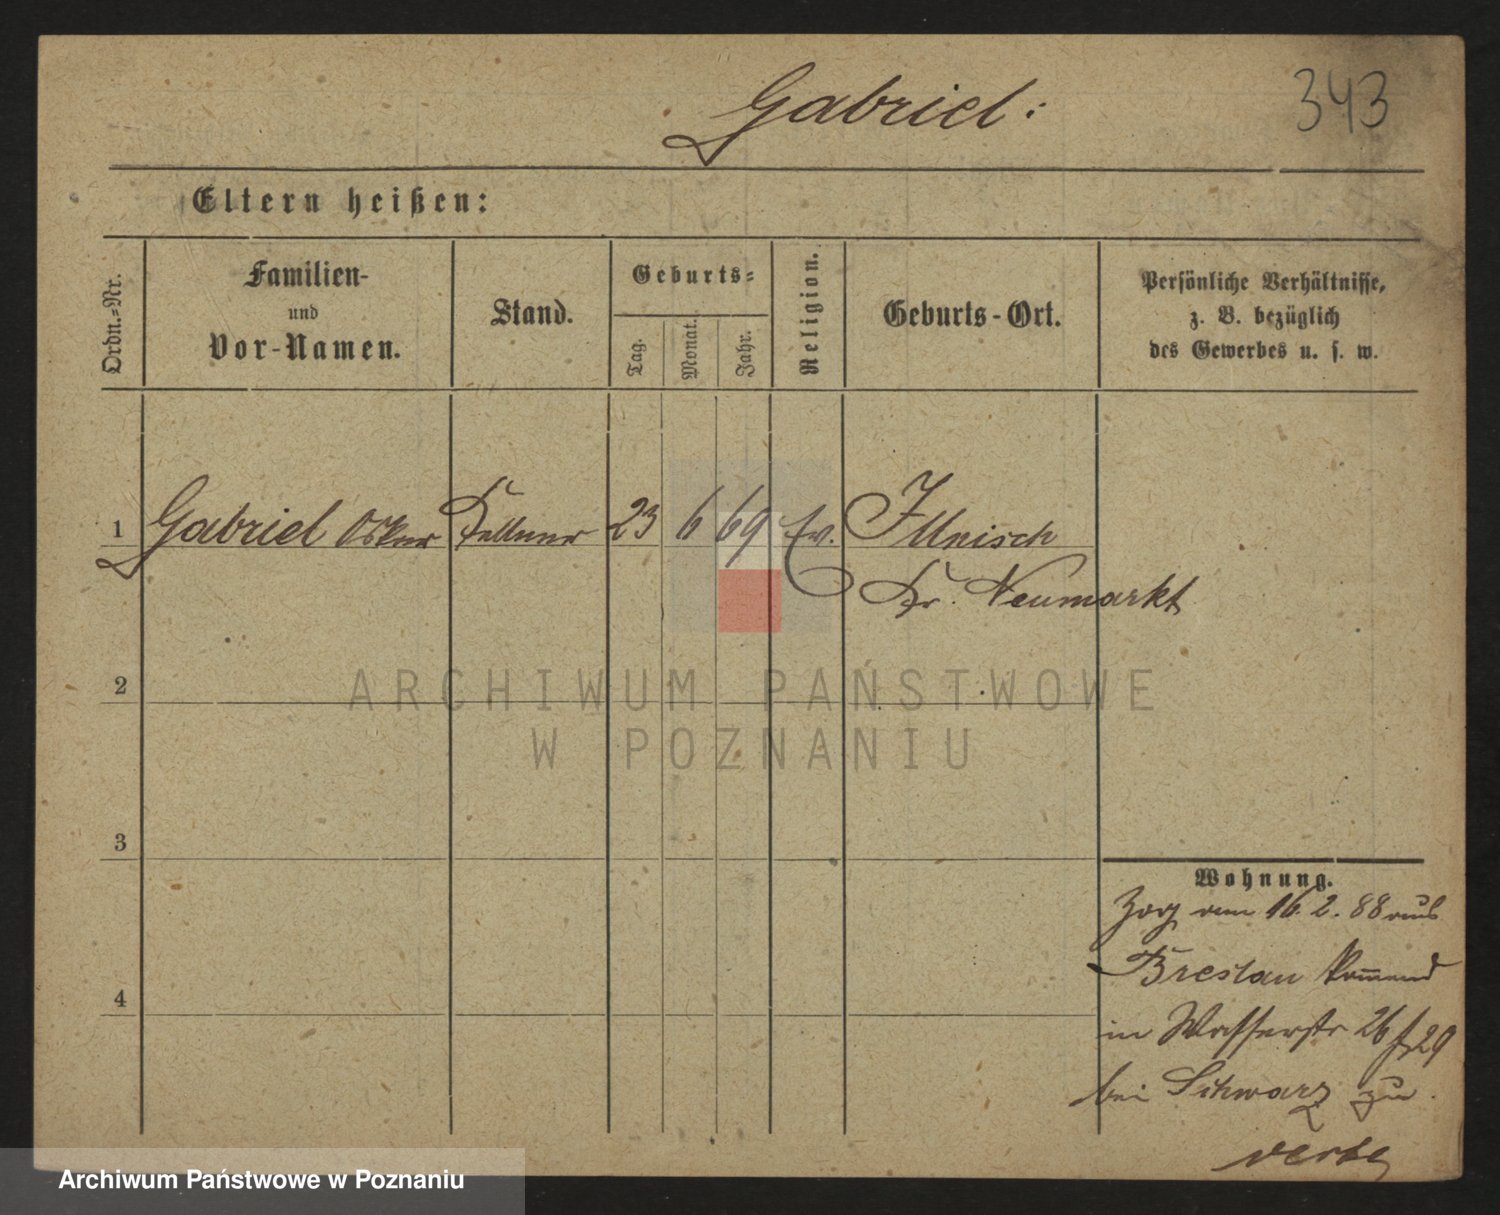 Gabriel:
343
Eltern heißen:
Ordn.-Nr.
Familien-
und
Vor-Namen.
Stand.
Geburts-
Tag.
Monat.
Jahr.
Religion.
Geburts-Ort.
Persönliche Verhältnisse,
z. B. bezüglich
des Gewerbes u. s. w.
1 Gabriel Oskar Kellner 23 6 69 Ev. Illnisch
Kr. Neumarkt
2
ARCHIWUM PAŃSTWOWE
W POZNANIU
3
4
Wohnung.
Zog am 16. 2. 88 aus
Breslau kommend
in Wasserstr 26
bei Schwarz zu.
Archiwum Państwowe w Poznaniu